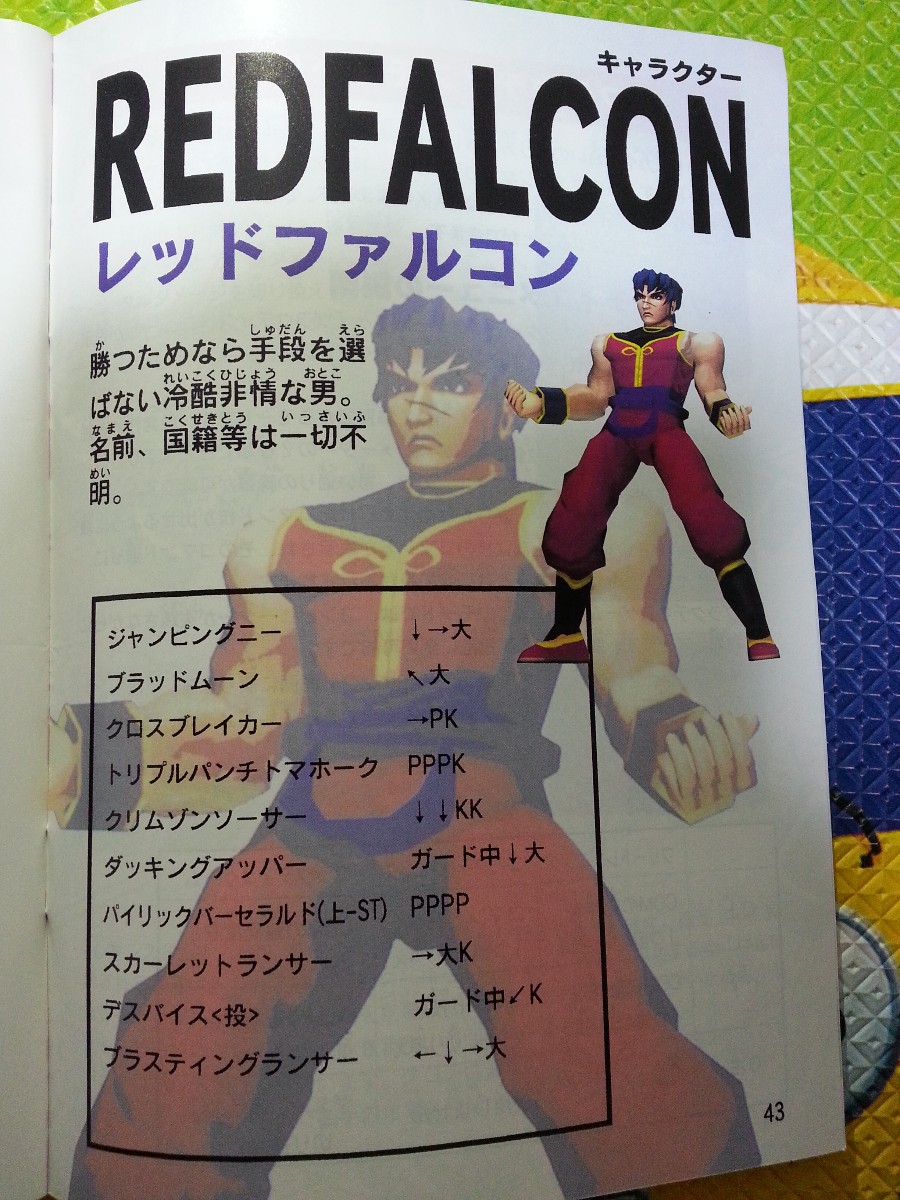 キャラクター
REDFALCON
レッドファルコン
勝つためなら手段を選
ばない冷酷非情な男。
名前、国籍等は一切不
明。
ジャンピングニー ↓→大
ブラッドムーン ↖大
クロスブレイカー →PK
トリプルパンチトマホーク PPPK
クリムゾンソーサー ↓↓KK
ダッキングアッパー ガード中↓大
パイリックバーセラルド(上-ST) PPPP
スカーレットランサー →大K
デスバイス<投> ガード中↙K
ブラスティングランサー ←↓→大
43